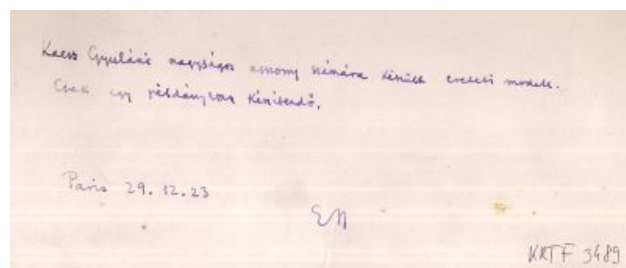 Kaess Gyuláné nagyságos asszony számára készült eredeti modell.
Csak egy példányban készítendő.
Paris 29.12.23
EN
KRTF 3489